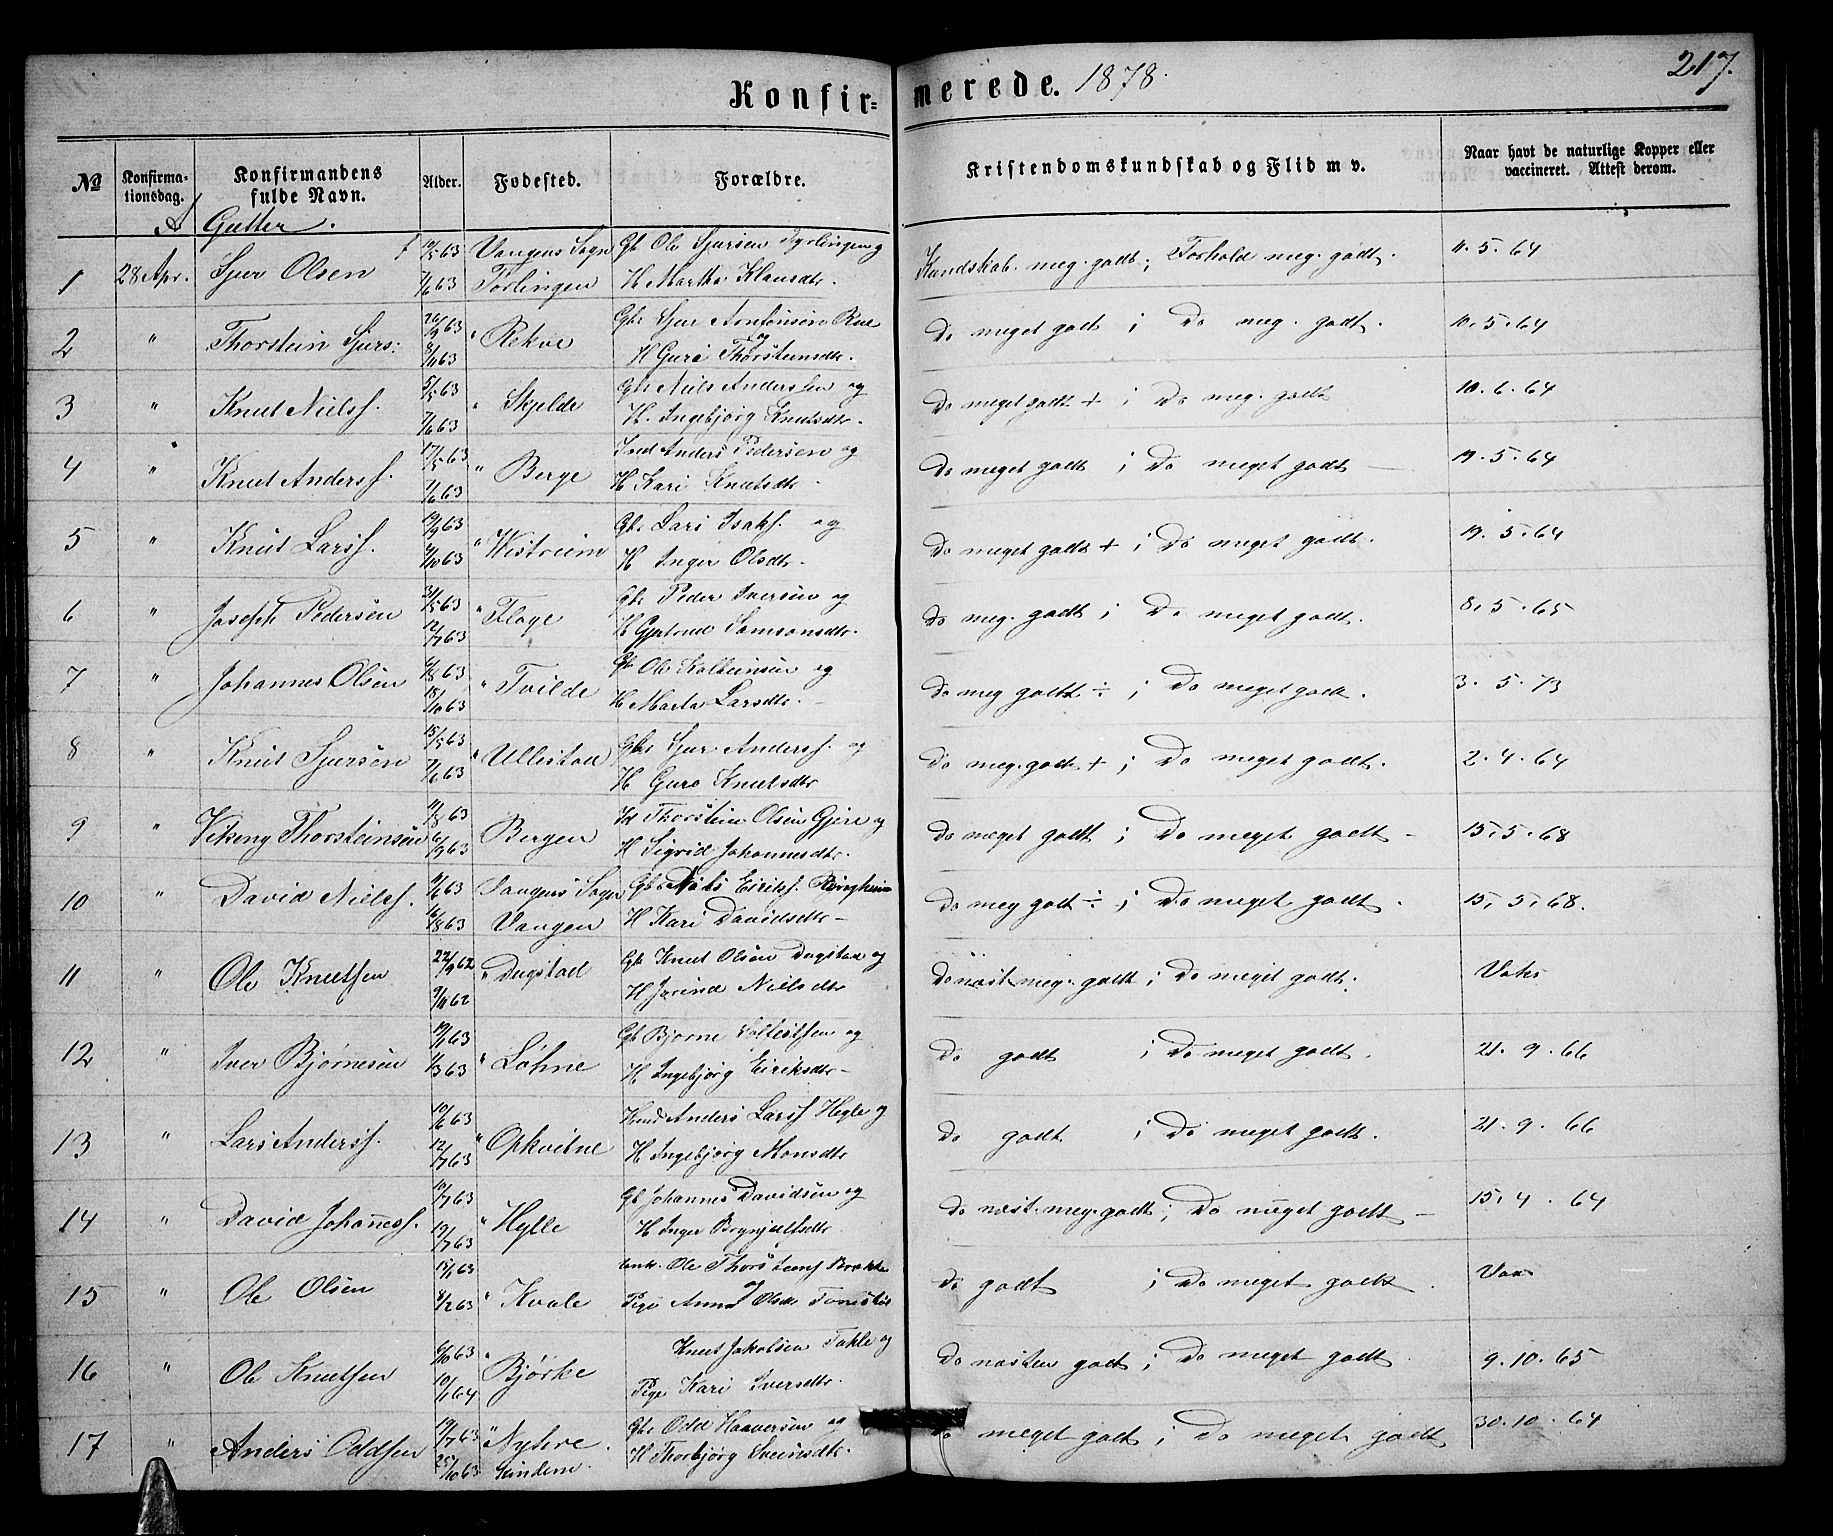 Konfirmerede. 1878.
217.
No
Konfirmationsdag.
Konfirmandens fulde Navn.
Alder.
Fødested.
Forældre.
Kristendomskundskab og Flid m v.
Naar havt de naturlige Kopper eller vaccineret. Attest derom.
A Gutter.
1 28 Apr. Sjur Olsen 63 Vangens Sogn Gb Ole Sjursen og
63 H Martha Klausdtr. Kundskab. meg. godt; Forhold meg. godt. 11. 5. 64
2 " Thorstein Sjurs: 63 " Rekve Gbr Sjur Rue
8/11 63 H Guro Thorsteinsdtr. Do meget godt ; Do meg. godt. 10. 5. 64
3 " Knut Nielss. 5/5 63 " Skjelde Gbr Niels Andersen og
7/6 63 H. Ingebjørg Knutsdtr. Do meget godt + ; Do meg. godt 10. 6. 64
4 " Knut Anderss. 17/5 63 " Berge Anders Pedersen og
7/6 63 H Kari Knutsdtr. Do meget godt ; Do meget godt — 19. 5. 64
5 " Knut Larss. 19/9 63 " Gbr Lars Isaks. og
63 H Inger Olsdtr. Do meget godt + ; Do meget godt. 19. 5. 64
6 " Joseph Pedersen 31/5 63 " Fløge Gbr Peder Iversen og
12/7 63 H Gjertrud Samsonsdtr. Do meg. godt ; Do meget godt. 8. 5. 65
7 " Johannes Olsen 63 " Tvilde Gb Ole Kolbeinsen og
18/10 63 H Marta Larsdtr. Do meg godt ÷ ; Do meget godt. 3. 5. 73
8 " Knut Sjursen 15/5 63 " Ullestad Gbr Sjur Anderss. og
7/6 63 H Guro Knutsdtr Do meg. godt + ; Do meget godt. 2. 4. 64
9 " Vikeng Thorsteinsen 11/8 63 Bergen Thorstein Olsen Gjere og
6/9 63 H Sigrid Johannesdtr. Do meget godt ; Do meget godt — 15. 5. 68
10 " David Nielss. 63 Vangens Sogn Gbr Niels Eirikss.
16/8 63 Vangen H Kari Davidsdtr — Do meg godt ÷ ; Do meget godt. 15. 5. 68.
11 " Ole Knutsen 22/9 62 " Dugstad Gb Knut Olsen Dugstad og
9/11 62 H Jorind Nielsdtr Do næst meg. godt ; Do meget godt.
12 " Iver Bjørnesen 63 " Løhne Gb Bjørne og
1/3 63 H Ingebjørg Eiriksdtr — Do godt ; Do meget godt. 21. 9. 66
13 " Lars Anderss. 10/6 63 " Opkvitne Anders Larss Hegle og
12/7 63 H Ingebjørg Monsdtr Do godt ; Do meget godt. 21. 9. 66
14 " David Johanness. 10/7 63 " Hylle Gb Johannes Davidsen og
19/7 63 H Inger Brynjulfsdtr. Do næst. meg. godt ; Do meget godt — 15. 4. 64
15 " Ole Olsen 15/1 63 " Kvale Ole Thorsteins og
8/2 63 Pige Anna Olsdr Do godt ; Do meget godt.
16 " Ole Knutsen 63 " Bjørke Knut Jakobsen Takle og
10/1 64 Pige Kari Iversdtr. Do næsten godt ; Do meget godt 9. 10. 65
17 " Anders Oddsen 19/7 63 " Gbr Odd Haaversen og
25/10 63 H Thorbjørg Sveinsdtr. Do meget godt ; Do meget godt 30. 10. 64